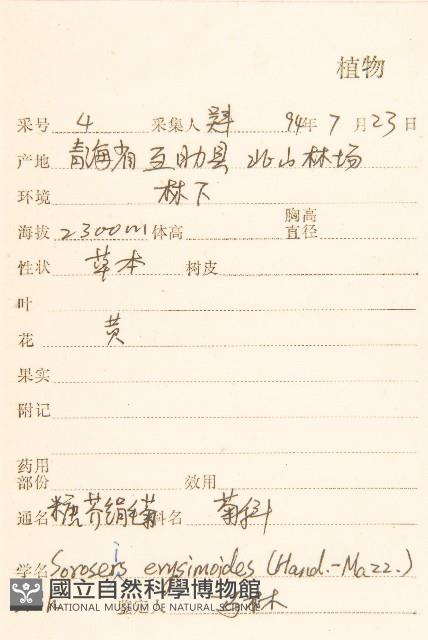 植物
采号 4 采集人 94年 7月23日
产地 青海省互助县 北山林场
环境 林下
胸高
海拔 2300m 体高 直径
性状 草本 树皮
叶
花 黄
果实
附记
药用
部份 效用
通名 糖芥绢毛菊 科名 菊科
学名 Soroseris erysimoides (Hand.-Mazz.)
國立自然科學博物館
NATIONAL MUSEUM OF NATURAL SCIENCE